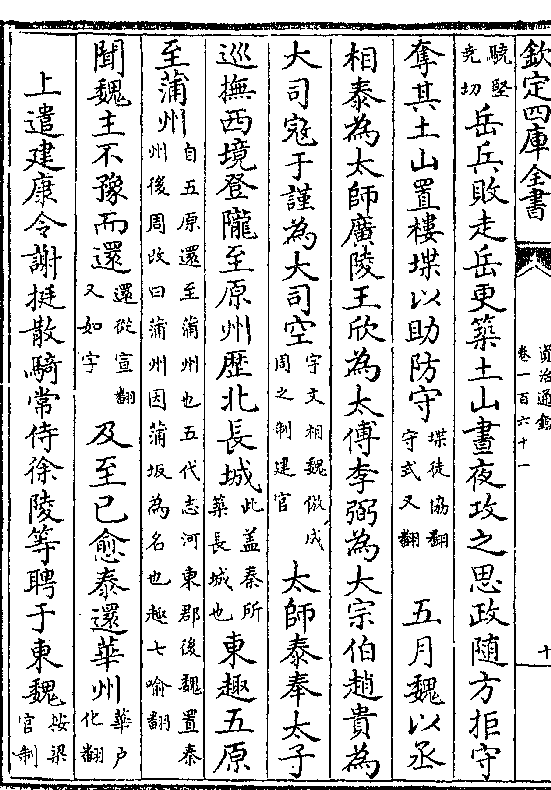 欽定四庫全書
資治通鑑
卷一百六十一
十
驍堅
堯切
岳兵敗走岳更築土山晝夜攻之思政随方拒守
奪其土山置樓堞以助防守
堞徒協翻
守式又翻
五月魏以丞
相泰為太師廣陵王欣為太傅李弼為大宗伯趙貴為
大司寇于謹為大司空
宇文相魏倣成
周之制建官
太師泰奉太子
巡撫西境登隴至原州歴北長城
此盖秦所
築長城也
東趣五原
至蒲州
自五原還至蒲州也五代志河東郡後魏置秦
州後周改曰蒲州因蒲坂為名也趣七喻翻
聞魏主不豫而還
還從宣翻
又如字
及至已愈泰還華州
華戶
化翻
上遣建康令謝挺散騎常侍徐陵等聘于東魏
按梁
官制